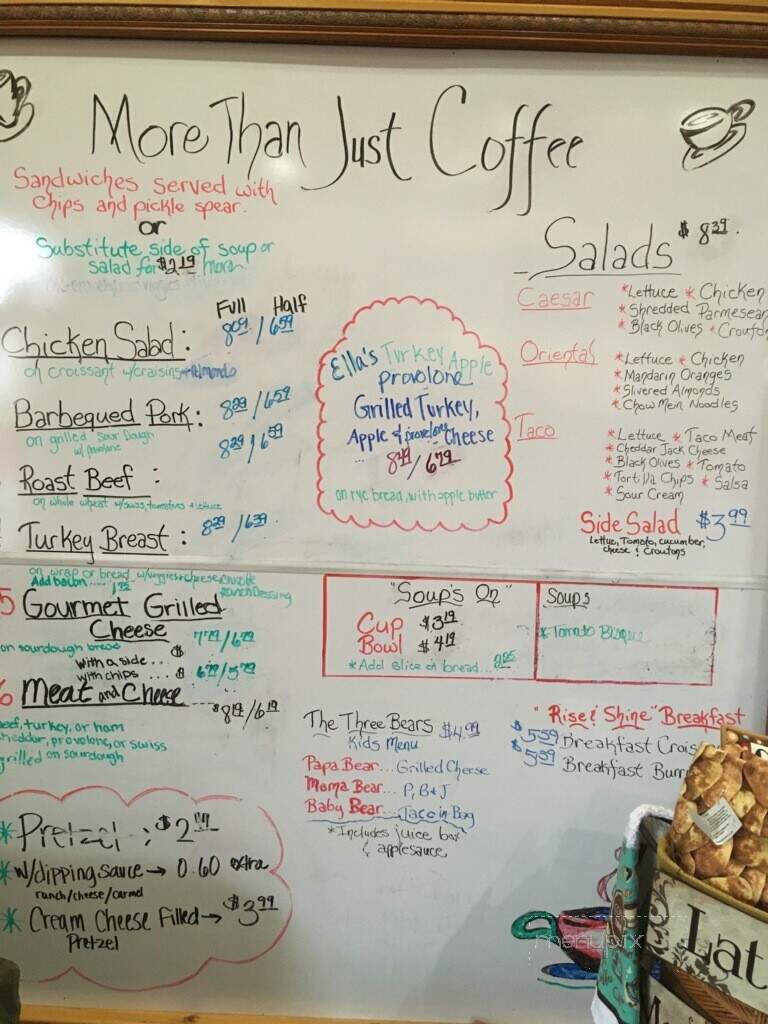 More Than Just Coffee
Sandwiches served with
chips and pickle spear.
or
Substitute side of soup or
salad for $2.19 more
Full Half
Chicken Salad:
on croissant w/craisins + Almonds
Barbequed Pork:
on grilled Sour Dough
w/ provolone
Roast Beef :
on whole wheat w/swiss, tomatoes + lettuce
Turkey Breast :
on wrap or bread w/veggies+cheese,
Add bacon
Ranch Dressing
Gourmet Grilled
Cheese
on sourdough bread
with a side... $
with chips...
Meat and Cheese
$8.19/6.19
beef, turkey, or ham
cheddar, provolone, or swiss
grilled on sourdough
Pretzel : $2
w/dipping sauce → 0.60 extra
ranch/cheese/carmel
Cream Cheese Filled → $3.99
Pretzel
Ella's Turkey Apple
provolone
Grilled Turkey,
Apple & provolone cheese
on rye bread, with apple butter
Salads $8.39
Caesar
*Lettuce *Chicken
*Shredded Parmesean
*Black Olives *Crouton
Oriental
*Lettuce *Chicken
*Mandarin Oranges
*Slivered Almonds
*Chow Mein Noodles
Taco
*Lettuce *Taco Meat
*Cheddar Jack Cheese
*Black Olives *Tomato
*Tortilla Chips *Salsa
*Sour Cream
Side Salad $3.99
Lettuce, Tomato, cucumber,
cheese & Croutons
"Soup's On"
Cup $3.19
Bowl $4.19
*Add slice of bread...
Soups
*Tomato Bisque
The Three Bears $4.99
Kids Menu
Papa Bear... Grilled Cheese
Moma Bear... P, B + J
Baby Bear... Taco in Bag
*Includes juice box
& applesauce
"Rise & Shine" Breakfast
$5.59 Breakfast Crois
$5.59 Breakfast Burr
Lat
menupix